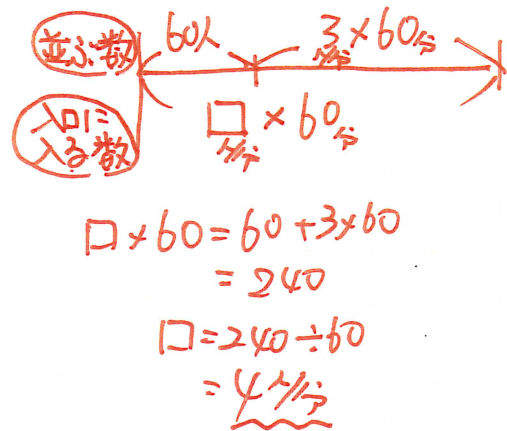 並ぶ数 60人 3人/分×60分
入口に
入る数 □人/分×60分
□×60=60+3×60
=240
□=240÷60
=4人/分